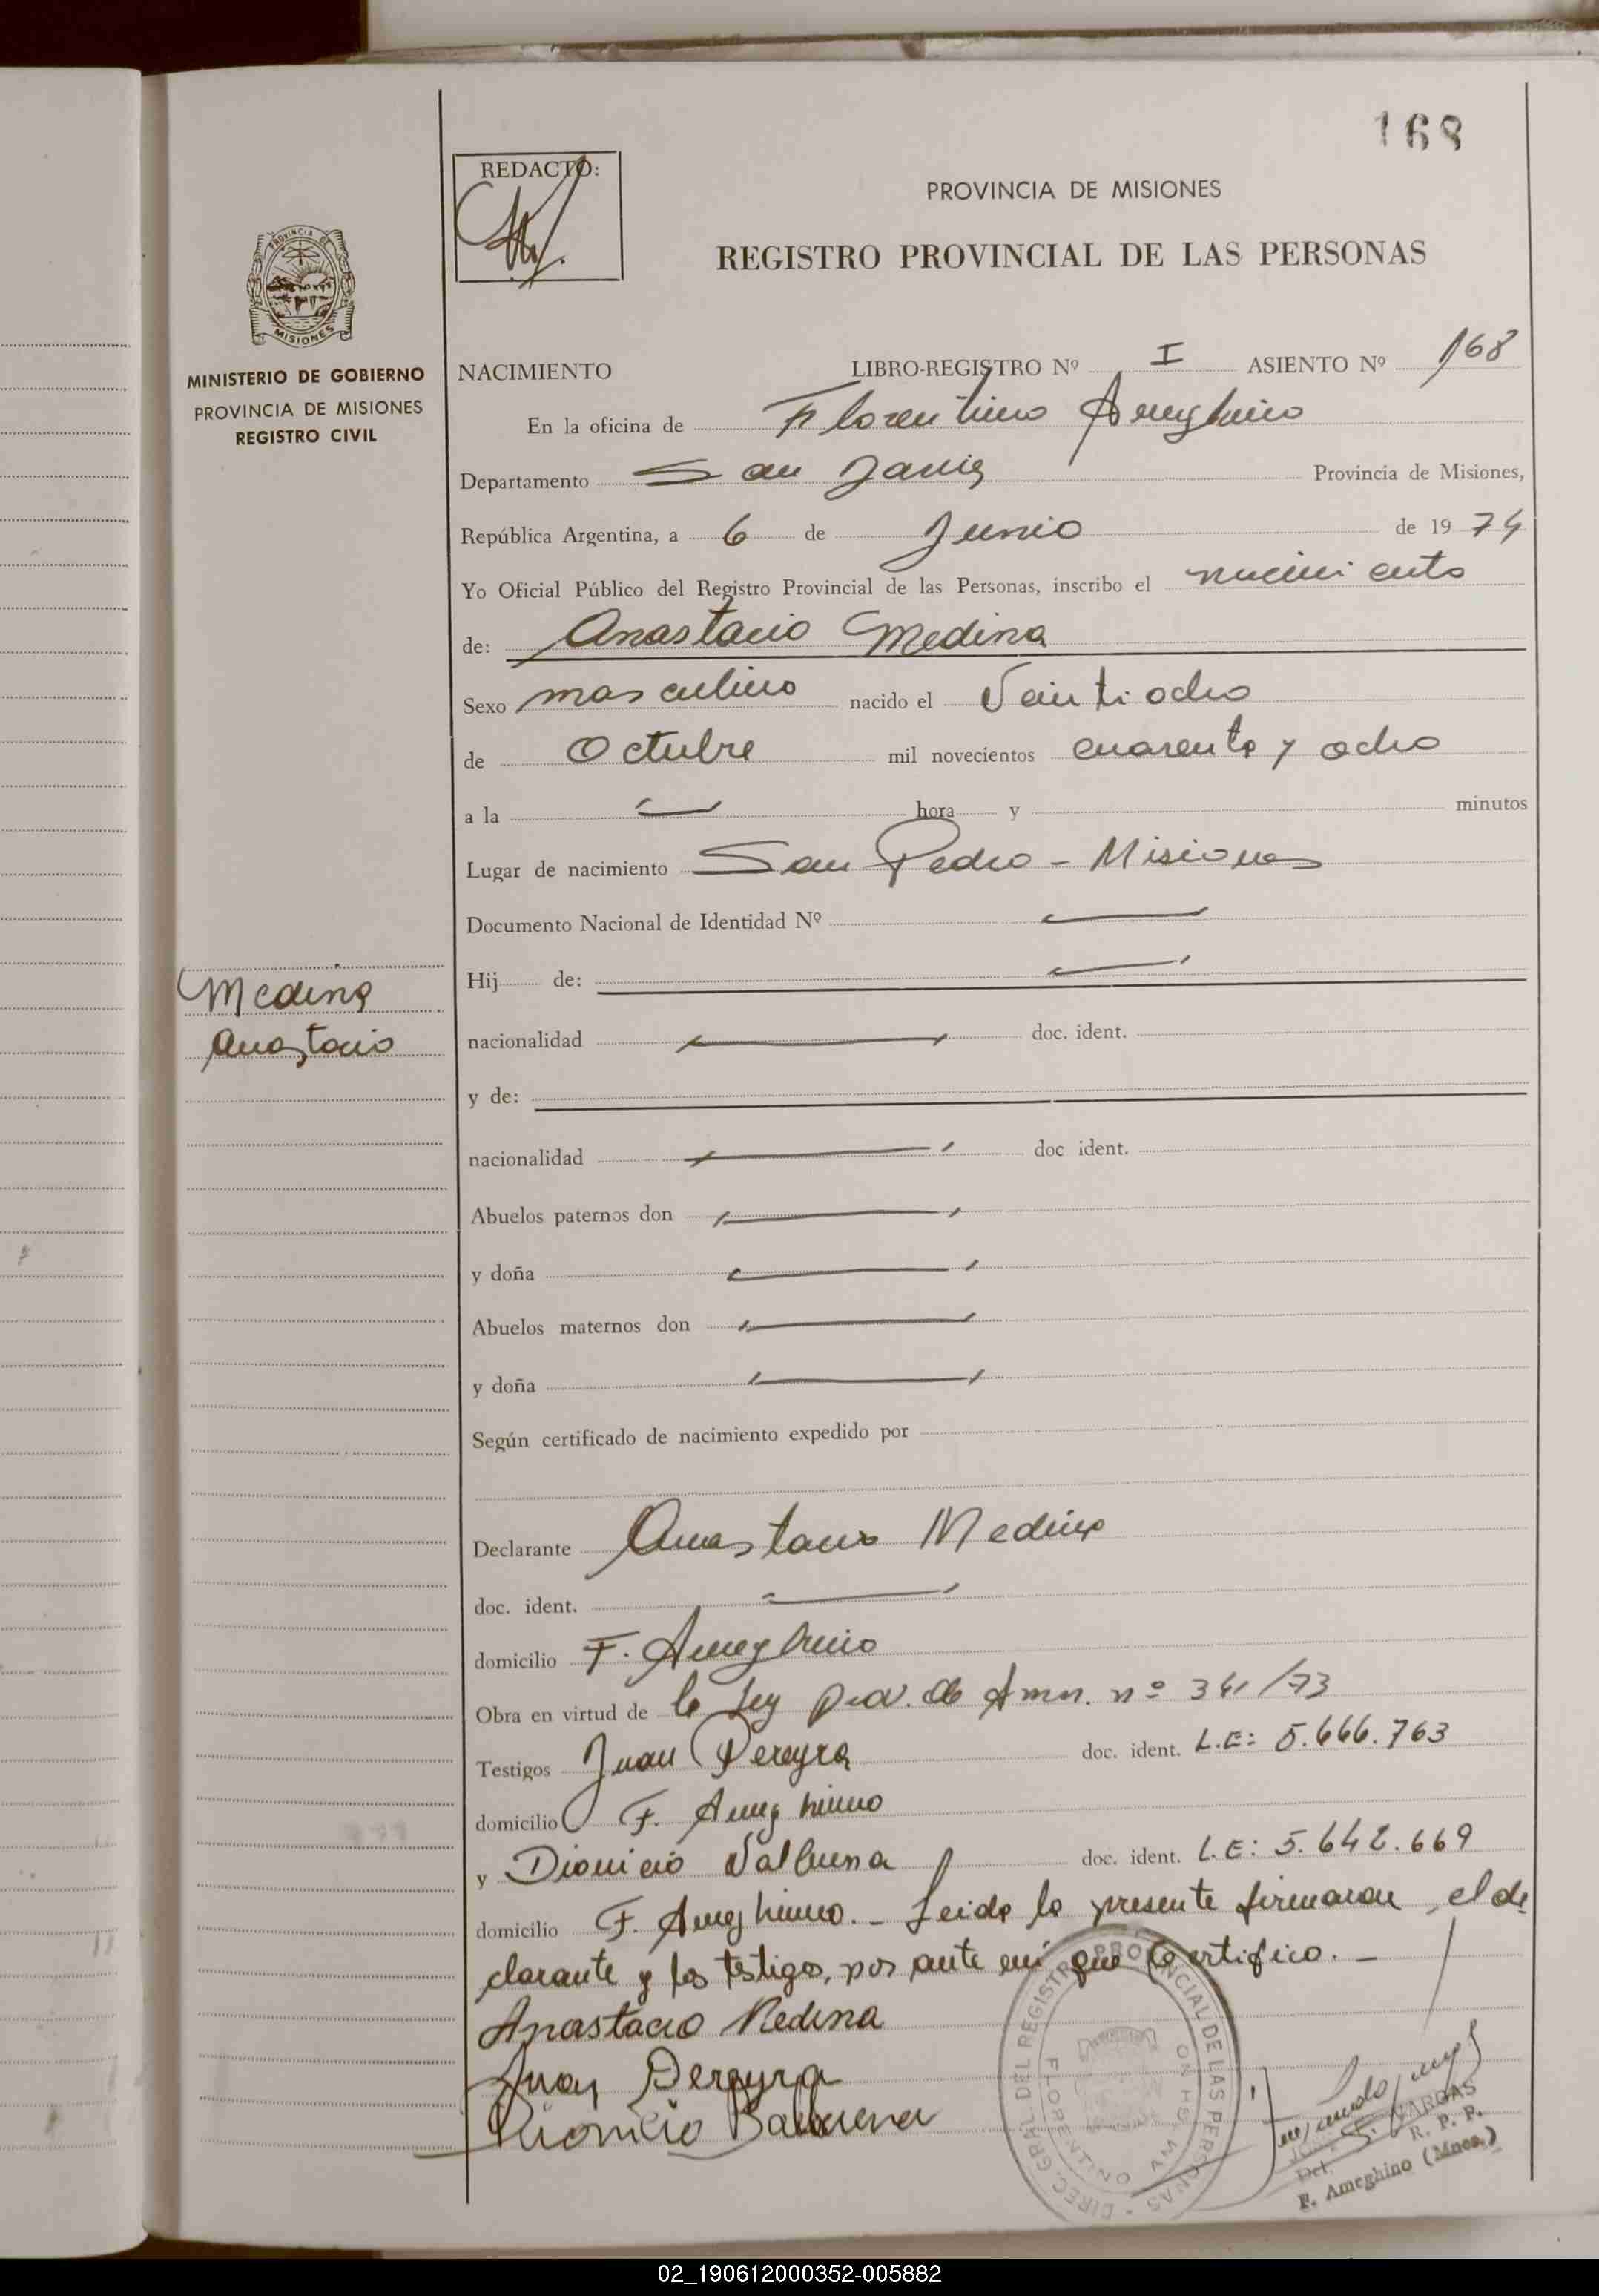 168
REDACTO:
PROVINCIA DE MISIONES
REGISTRO PROVINCIAL DE LAS PERSONAS
PROVINCIA DE
MISIONES
MINISTERIO DE GOBIERNO
PROVINCIA DE MISIONES
REGISTRO CIVIL
NACIMIENTO LIBRO-REGISTRO Nº I ASIENTO Nº 168
En la oficina de Florentino Ameghino
Departamento San Javier Provincia de Misiones,
República Argentina, a 6 de Junio de 1974
Yo Oficial Público del Registro Provincial de las Personas, inscribo el nacimiento
de: Anastacio Medina
Sexo masculino nacido el Veintiocho
de Octubre mil novecientos cuarenta y ocho
a la hora y minutos
Lugar de nacimiento San Pedro - Misiones
Documento Nacional de Identidad Nº
Hij de:
Medina
Anastacio
nacionalidad doc. ident.
y de:
nacionalidad doc ident.
Abuelos paternos don
y doña
Abuelos maternos don
y doña
Según certificado de nacimiento expedido por
Declarante Anastacio Medina
doc. ident.
domicilio F. Ameghino
Obra en virtud de la Ley Prov. de Amn. nº 341/73
Testigos Juan Pereyra doc. ident. L.E: 5.666.763
domicilio F. Ameghino
y Dionicio Valbuena doc. ident. L.E: 5.642.669
domicilio F. Ameghino. - Leida la presente firmaron, el de
clarante y los testigos, por ante mi que Certifico. -
Anastacio Medina
Juan Pereyra
Dionicio Balbuena
DIREC. GRAL. DEL REGISTRO PROVINCIAL DE LAS PERSONAS
FLORENTINO AMEGHINO
VARGAS
Del. R. P. P.
F. Ameghino (Mnes.)
02_190612000352-005882